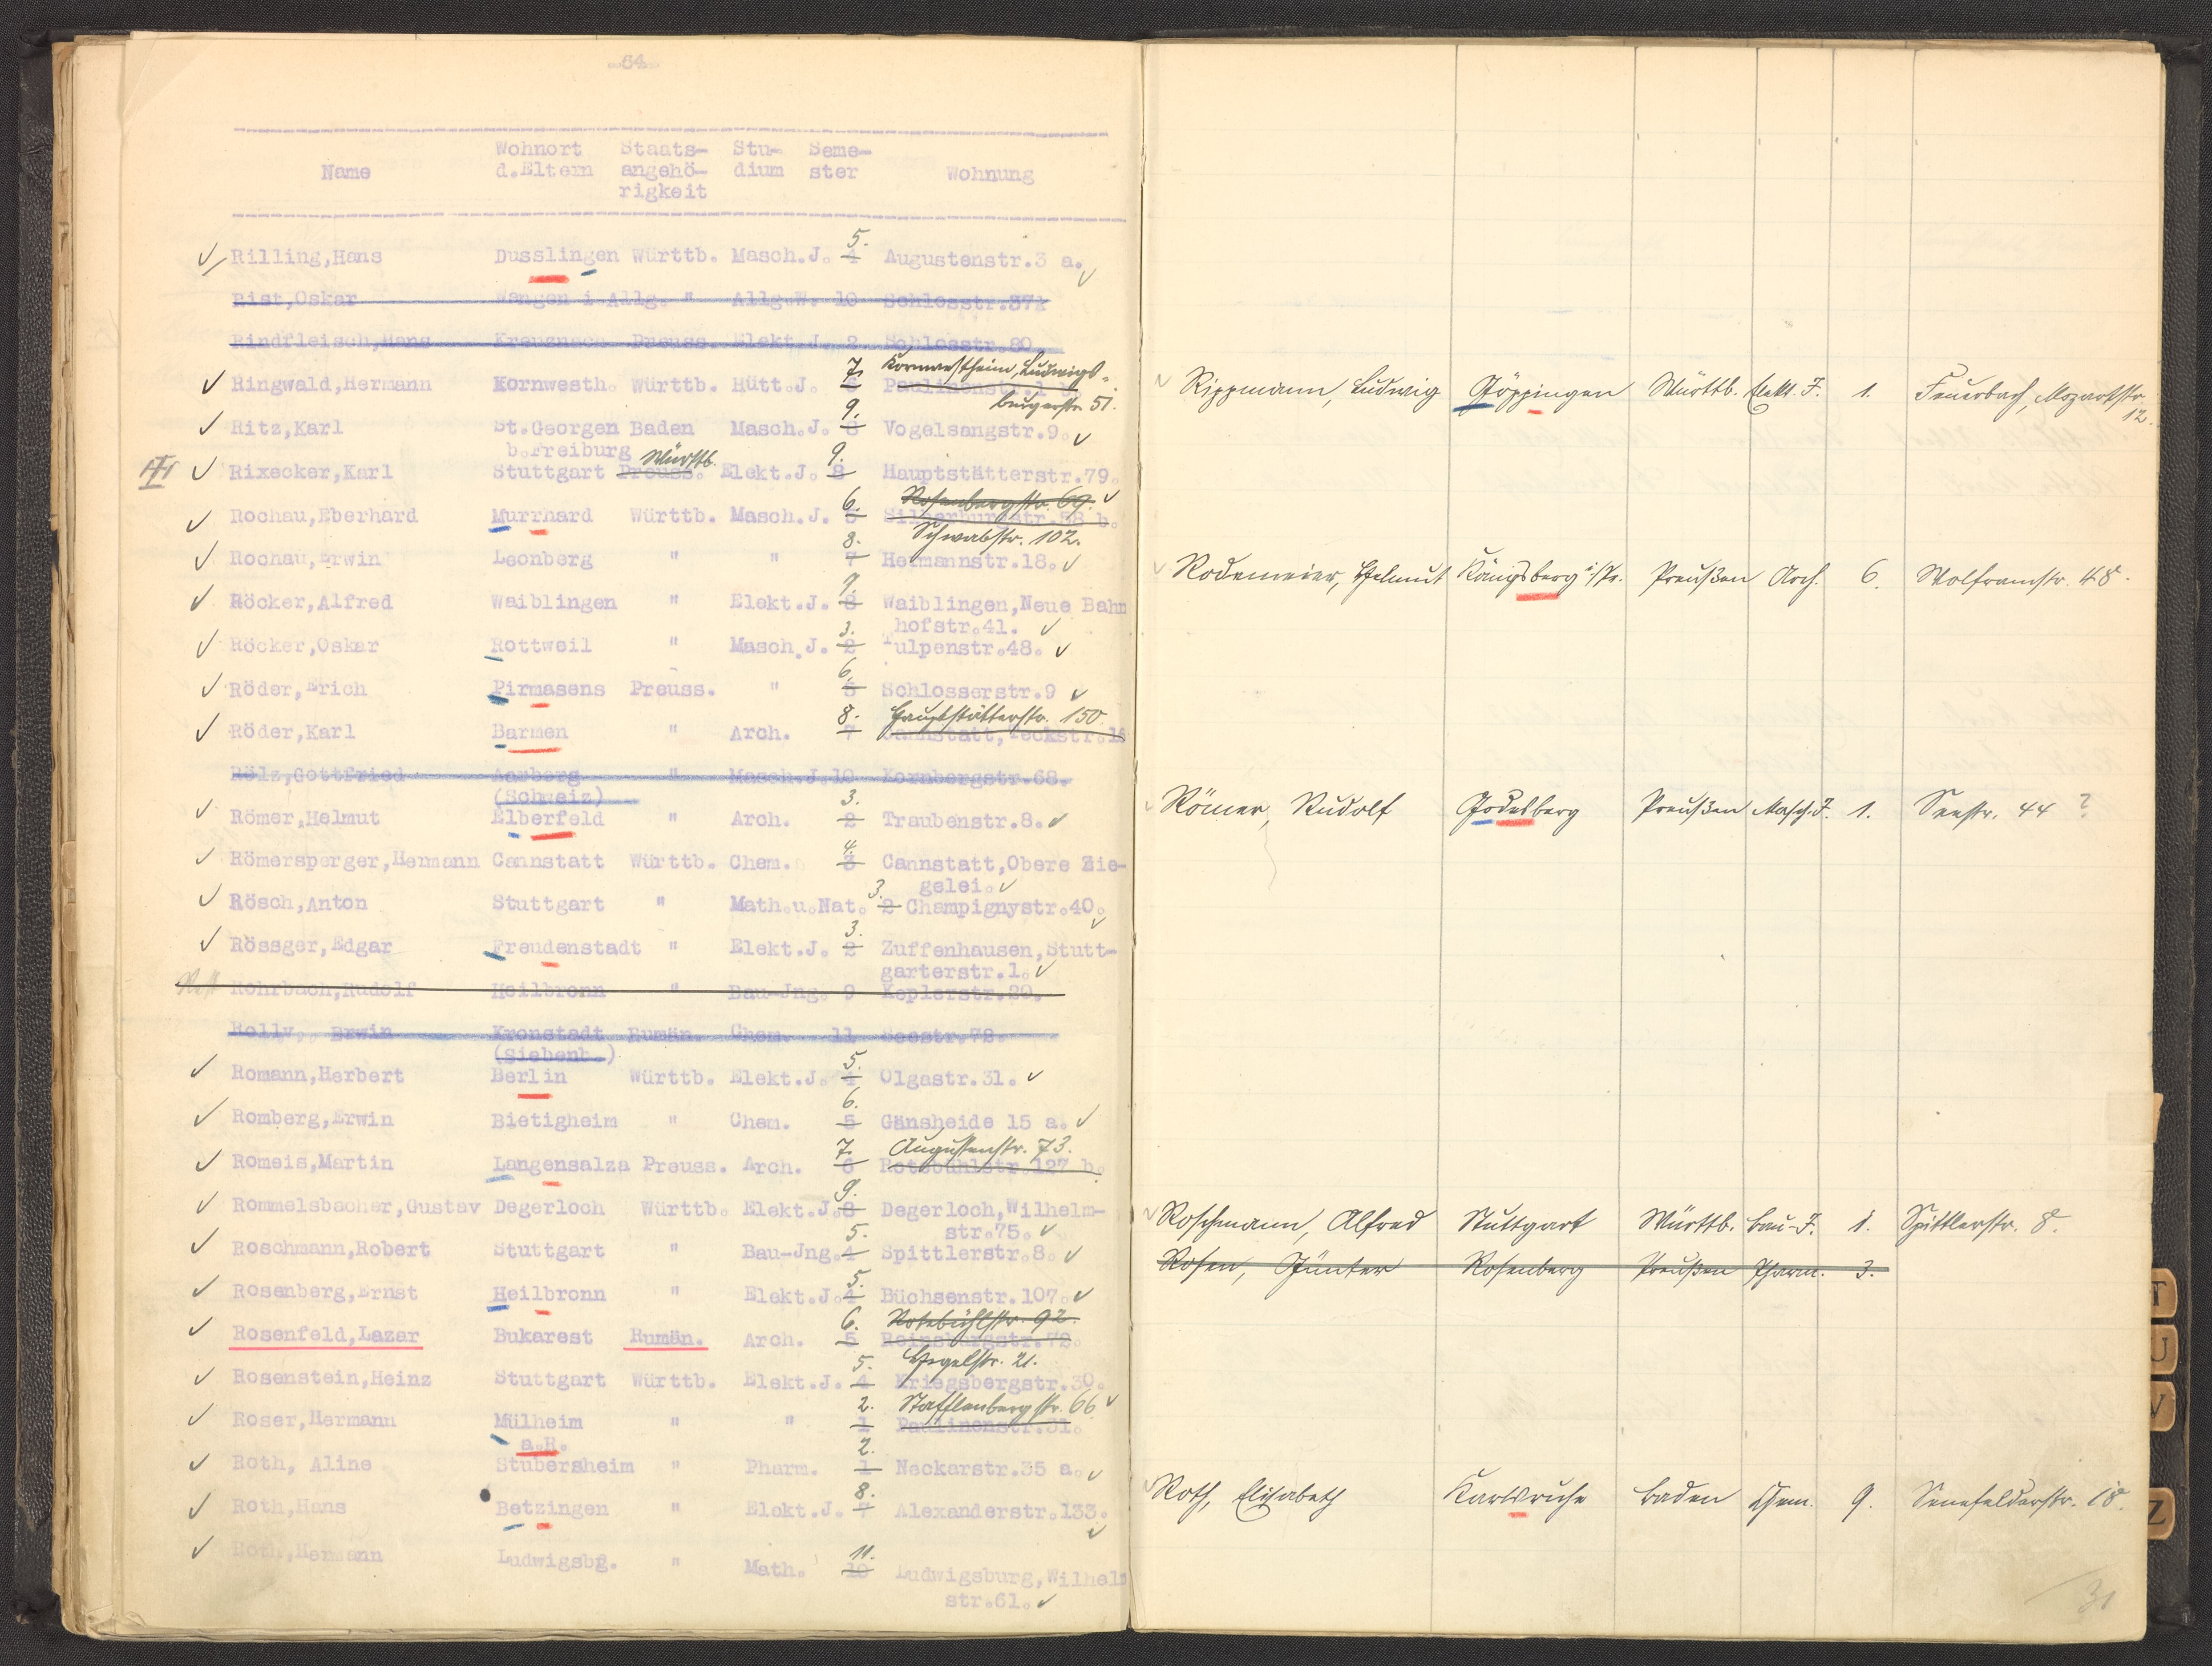 -64-
Name Wohnort d.Eltern Staats-angehö-rigkeit Stu-dium Seme-ster Wohnung
✓ Rilling,Hans Dusslingen Württb. Masch.J. 4 5. Augustenstr.3 a. ✓
Rist,Oskar Wangen i Allg. " Allg.W. 10 Schlosstr.57
Rindfleisch,Hans Kreuznach Preuss. Elekt.J. 2 Schlosstr.80
✓ Ringwald,Hermann Kornwesth. Württb. Hütt.J. 6 7. Paulinenstr.1 b. Kornwestheim, Ludwigs-
burgerstr. 51.
✓ Ritz,Karl St.Georgen Baden Masch.J. 8 9. Vogelsangstr.9. ✓
b.Freiburg
✓ Rixecker,Karl Stuttgart Preuss. Württb. Elekt.J. 8 9. Hauptstätterstr.79.
Rosenbergstr. 69. ✓
✓ Rochau,Eberhard Murrhard Württb. Masch.J. 5 6. Silberburgstr.58 b.
Schwabstr. 102.
✓ Rochau,Erwin Leonberg " " 7 8. Hermannstr.18. ✓
✓ Röcker,Alfred Waiblingen " Elekt.J. 8 9. Waiblingen,Neue Bahn
hofstr.41. ✓
✓ Röcker,Oskar Rottweil " Masch.J. 2 3. Tulpenstr.48. ✓
✓ Röder,Erich Pirmasens Preuss. " 5 6. Schlosserstr.9 ✓
Hauptstätterstr. 150.
✓ Röder,Karl Barmen " Arch. 7 8. Cannstatt,Teckstr.18
Rölz,Gottfried Aarberg " Masch.J.10 Kornbergstr.68.
(Schweiz)
✓ Römer,Helmut Elberfeld " Arch. 2 3. Traubenstr.8. ✓
✓ Römersperger,Hermann Cannstatt Württb. Chem. 3 4. Cannstatt,Obere Zie-
gelei. ✓
✓ Rösch,Anton Stuttgart " Math.u.Nat. 2 3. Champignystr.40. ✓
✓ Rössger,Edgar Freudenstadt " Elekt.J. 2 3. Zuffenhausen,Stutt-
garterstr.1. ✓
Rohrbach,Rudolf Heilbronn " Bau-Jng. 9 Keplerstr.20.
Holly, Erwin Kronstadt Rumän. Chem. 11 Seestr.72.
(Siebenb.)
✓ Romann,Herbert Berlin Württb. Elekt.J. 4 5. Olgastr.31. ✓
✓ Romberg,Erwin Bietigheim " Chem. 5 6. Gänsheide 15 a. ✓
Augustenstr. 73.
✓ Romeis,Martin Langensalza Preuss. Arch. 6 7. Rotebühlstr.127 b.
✓ Rommelsbacher,Gustav Degerloch Württb. Elekt.J.8 9. Degerloch,Wilhelm-
str.75. ✓
✓ Roschmann,Robert Stuttgart " Bau-Jng.4 5. Spittlerstr.8. ✓
✓ Rosenberg,Ernst Heilbronn " Elekt.J.4 5. Büchsenstr.107. ✓
Rotebühlstr. 92.
✓ Rosenfeld,Lazar Bukarest Rumän. Arch. 5 6. Reinsburgstr.72.
Hegelstr. 21.
✓ Rosenstein,Heinz Stuttgart Württb. Elekt.J. 4 5. Kriegsbergstr.30.
Stafflenbergstr. 66 ✓
✓ Roser,Hermann Mülheim " " 1 2. Paulinenstr.31.
a.H.
✓ Roth, Aline Stubersheim " Pharm. 1 2. Neckarstr.35 a. ✓
✓ Roth,Hans Betzingen " Elekt.J. 7 8. Alexanderstr.133. ✓
✓ Roth,Hermann Ludwigsbg. " Math. 10 11. Ludwigsburg,Wilhelm
str.61. ✓
Rippmann, Ludwig Göppingen Württb. Elekt. J. 1. Feuerbach, Mozartstr.
12.
Rodemeier, Helmut Königsberg i/Pr. Preußen Arch. 6. Wolframstr. 48.
Römer, Rudolf Godesberg Preußen Masch.J. 1. Seestr. 44 ?
Roschmann, Alfred Stuttgart Württb. Bau-J. 1. Spittlerstr. 8.
Rosen, Günter Rosenberg Preußen Pharm. 3.
Roth, Elisabeth Karlsruhe Baden Chem. 9. Senefelderstr. 18.
31
T
U
V
Z